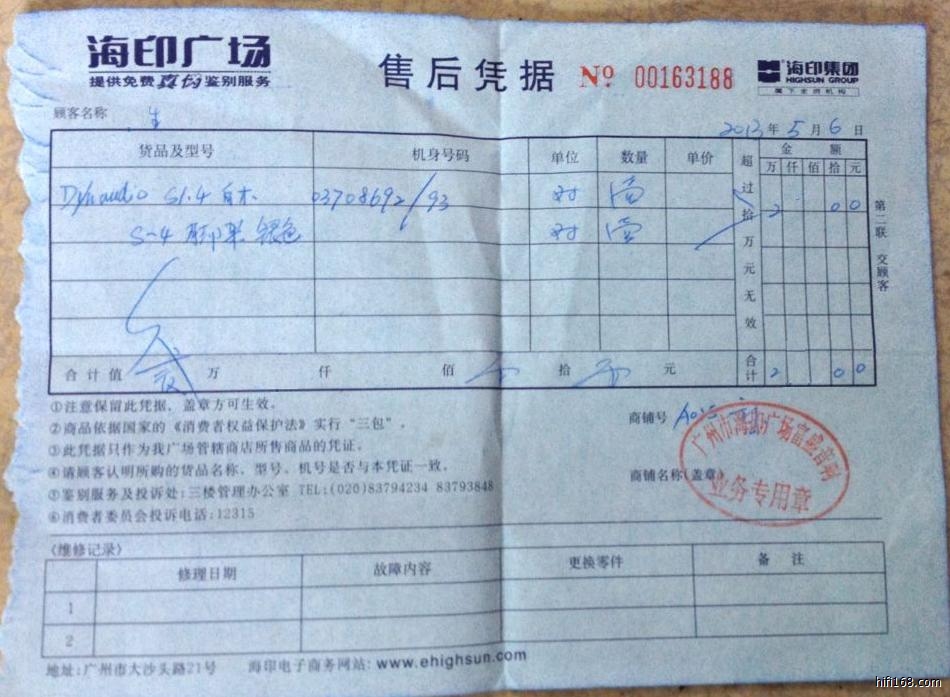 海印广场
提供免费真伪鉴别服务
售后凭据 Nº 00163188
海印集团
HIGHSUN GROUP
属下主润机构
顾客名称 生
2013年5月6日
货品及型号 机身号码 单位 数量 单价 超过拾万元无效 金额
万 仟 佰 拾 元
Dynaudio S1.4 白木 03708692/93 对 壹 2 0 0
S-4 脚架 银色 对 壹
合计值 万 仟 佰 拾 元 合计 2 0 0
第二联 交顾客
①注意保留此凭据，盖章方可生效。
②商品依据国家的《消费者权益保护法》实行“三包”。
③此凭据只作为我广场管辖商店所售商品的凭证。
④请顾客认明所购的货品名称、型号、机号是否与本凭证一致。
⑤鉴别服务及投诉处:三楼管理办公室 TEL:(020)83794234 83793848
⑥消费者委员会投诉电话:12315
商铺号
商铺名称(盖章)
广州市海印广场富盛音响
业务专用章
《维修记录》
修理日期 故障内容 更换零件 备注
1
2
地址:广州市大沙头路21号 海印电子商务网站: www.ehighsun.com
hifi168.com